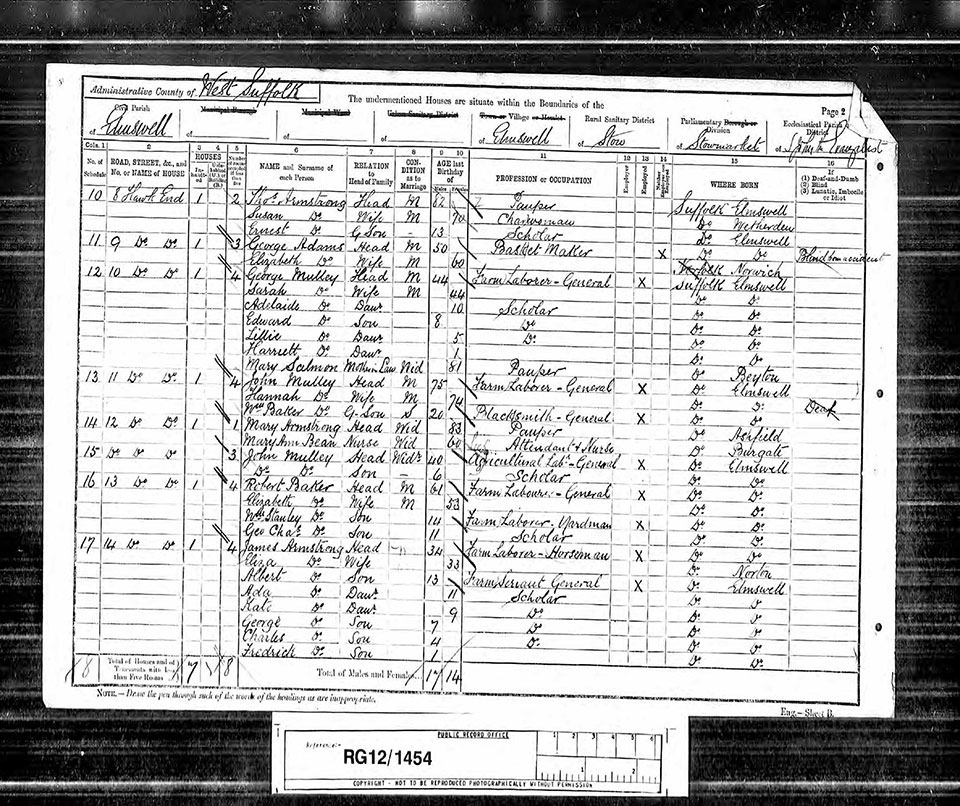 Administrative County of West Suffolk
The undermentioned Houses are situate within the Boundaries of the
Page 2
Civil Parish of Elmswell
Municipal Borough of
Municipal Ward of
Urban Sanitary District of
Town or Village or Hamlet of Elmswell
Rural Sanitary District of Stow
Parliamentary Borough or Division of Stowmarket
Ecclesiastical Parish or District of
Cols. 1 2 3 4 5 6 7 8 9 10 11 12 13 14 15 16
No. of Schedule ROAD, STREET, &c., and No. or NAME of HOUSE HOUSES Inhabited NAME and Surname of each Person RELATION to Head of Family CONDITION as to Marriage AGE last Birthday of Males Females PROFESSION or OCCUPATION Employer Employed Neither WHERE BORN If (1) Deaf-and-Dumb (2) Blind (3) Lunatic, Imbecile or Idiot
10 8 Hawk End 1 2 Thos. Armstrong Head M 82 Pauper Suffolk Elmswell
Susan Do Wife M 70 Charwoman Do Wetherden
Ernest Do G Son - 13 Scholar Do Elmswell
11 9 Do Do 1 3 George Adams Head M 50 Basket Maker X Do Do Blind from accident
Elizabeth Do Wife M 60 Norfolk Norwich
12 10 Do Do 1 4 George Mulley Head M 44 Farm Laborer - General X Suffolk Elmswell
Sarah Do Wife M 44 Do Do
Adelaide Do Daur 10 Scholar Do Do
Edward Do Son 8 Do Do Do
Lillie Do Daur 5 Do Do Do
Harriett Do Daur 1 Do Do
Mary Salmon Mother in Law Wid 81 Pauper Do Beyton
13 11 Do Do 1 4 John Mulley Head M 75 Farm Laborer - General X Do Elmswell
Hannah Do Wife M 74 Do Do Deaf
Wm Baker Do G-Son S 20 Blacksmith - General X Do Do
14 12 Do Do 1 1 Mary Armstrong Head Wid 83 Pauper Do Ashfield
Mary Ann Bean Nurse Wid 60 Attendant & Nurse Do Burgate
15 Do Do Do 3 John Mulley Head Widr 40 Agricultural Labr - General X Do Elmswell
Do Do Son 6 Scholar Do Do
16 13 Do Do 1 4 Robert Baker Head M 61 Farm Labourer - General X Do Do
Elizabeth Do Wife M 53 Do Do
Wm Stanley Do Son 14 Farm Laborer - Yardman X Do Do
Geo Chas Do Son 11 Scholar Do Do
17 14 Do Do 1 4 James Armstrong Head 34 Farm Laborer - Horseman X Do Do
Eliza Do Wife 33 Do Norton
Albert Do Son 13 Farm Servant General X Do Elmswell
Ada Do Daur 11 Scholar Do Do
Kate Do Daur 9 Do Do Do
George Do Son 7 Do Do Do
Charles Do Son 4 Do Do Do
Fredrick Do Son 1 Do Do
8 Total of Houses and of Tenements with less than Five Rooms 7 8 Total of Males and Females... 17 14
NOTE.—Draw the pen through such of the words of the headings as are inappropriate.
Eng.—Sheet B.
PUBLIC RECORD OFFICE
Reference:-
RG12/1454
1 2 3 4 5 6
1 2
COPYRIGHT - NOT TO BE REPRODUCED PHOTOGRAPHICALLY WITHOUT PERMISSION